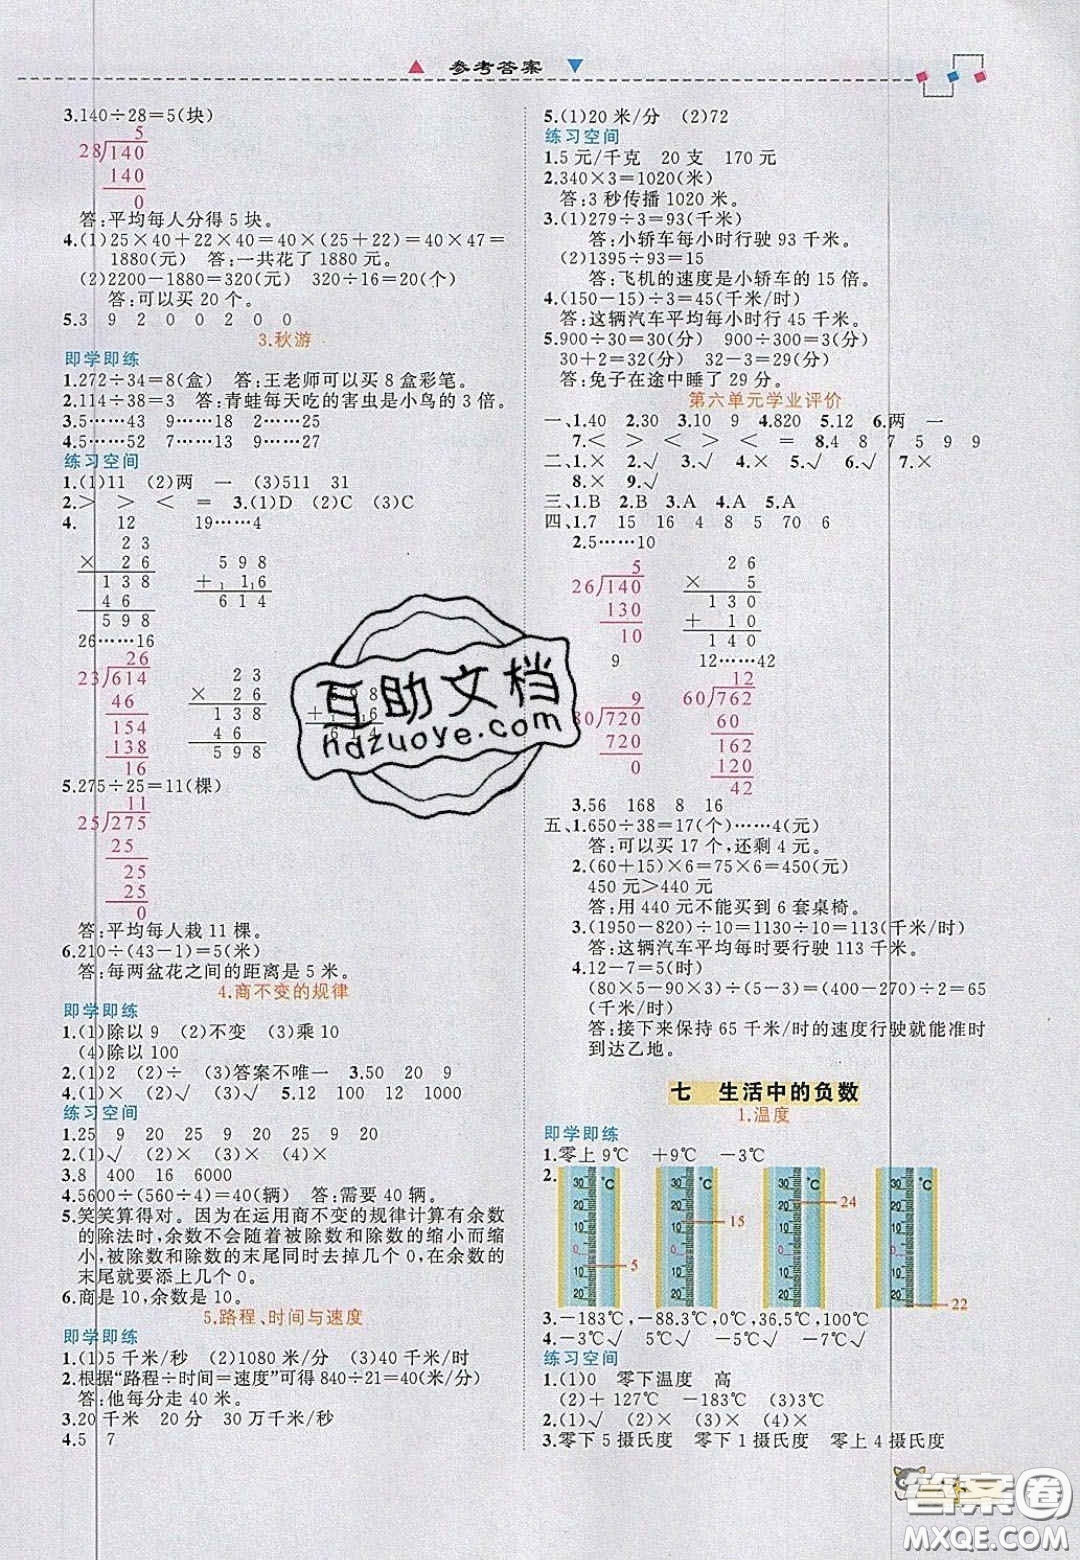 参考答案
3.140÷28=5(块)
5
28)140
140
0
答:平均每人分得 5 块。
4.(1)25×40+22×40=40×(25+22)=40×47=
1880(元)　答:一共花了 1880 元。
(2)2200-1880=320(元)　320÷16=20(个)
答:可以买 20 个。
5.3　9　2　0　0　2　0　0
3.秋游
即学即练
1.272÷34=8(盒)　答:王老师可以买 8 盒彩笔。
2.114÷38=3　答:青蛙每天吃的害虫是小鸟的 3 倍。
3.5……43　9……18　2……25
4.5……52　7……13　9……27
练习空间
1.(1)11　(2)两　一　(3)511　31
2.>　>　<　=　3.(1)D　(2)C　(3)C
4.　12　19……4
23
× 26
138
46
598
598
+ 16
614
26……16
26
23)614
46
154
138
16
23
× 26
138
46
598
598
+ 16
614
5.275÷25=11(棵)
11
25)275
25
25
25
0
答:平均每人栽 11 棵。
6.210÷(43-1)=5(米)
答:每两盆花之间的距离是 5 米。
4.商不变的规律
即学即练
1.(1)除以 9　(2)不变　(3)乘 10
(4)除以 100
2.(1)2　(2)÷　(3)答案不唯一　3.50　20　9
4.(1)×　(2)√　(3)√　5.12　120　1000
练习空间
1.25　9　20　25　9　20　25　9　20
2.(1)√　(2)×　(3)×　(4)×
3.8　400　16　6000
4.5600÷(560÷4)=40(辆)　答:需要 40 辆。
5.笑笑算得对。因为在运用商不变的规律计算有余数
的除法时,余数不会随着被除数和除数的缩小而缩
小,被除数和除数的末尾同时去掉几个 0,在余数的
末尾就要添上几个 0。
6.商是 10,余数是 10。
5.路程、时间与速度
即学即练
1.(1)5 千米/秒　(2)1080 米/分　(3)40 千米/时
2.根据“路程÷时间=速度”可得 840÷21=40(米/分)
答:他每分走 40 米。
3.20 千米　20 分　30 万千米/秒
4.5　7
5.(1)20 米/分　(2)72
练习空间
1.5 元/千克　20 支　170 元
2.340×3=1020(米)
答:3 秒传播 1020 米。
3.(1)279÷3=93(千米)
答:小轿车每小时行驶 93 千米。
(2)1395÷93=15
答:飞机的速度是小轿车的 15 倍。
4.(150-15)÷3=45(千米/时)
答:这辆汽车平均每小时行 45 千米。
5.900÷30=30(分)　900÷300=3(分)
30+2=32(分)　32-3=29(分)
答:兔子在途中睡了 29 分。
第六单元学业评价
一、1.40　2.30　3.10　9　4.820　5.12　6.两　一
7.<　>　<　>　<　=　8.4　8　7　5　9　9
二、1.×　2.√　3.√　4.×　5.√　6.√　7.×
8.×　9.√
三、1.B　2.B　3.A　4.A　5.A
四、1.7　15　16　4　8　5　70　6
2.5……10
5
26)140
130
10
26
× 5
130
+ 10
140
9　12……42
9
80)720
720
0
12
60)762
60
162
120
42
3.56　168　8　16
五、1.650÷38=17(个)……4(元)
答:可以买 17 个,还剩 4 元。
2.(60+15)×6=75×6=450(元)
450 元>440 元
答:用 440 元不能买到 6 套桌椅。
3.(1950-820)÷10=1130÷10=113(千米/时)
答:这辆汽车平均每时要行驶 113 千米。
4.12-7=5(时)
(80×5-90×3)÷(5-3)=(400-270)÷2=65
(千米/时)
答:接下来保持 65 千米/时的速度行驶就能准时
到达乙地。
七　生活中的负数
1.温度
即学即练
1.零上 9℃　+9℃　-3℃
2.
30 ℃ 20 10 0 10 20　5
30 ℃ 20 10 0 10 20　15
30 ℃ 20 10 0 10 20　24
30 ℃ 20 10 0 10 20　22
3.-183℃,-88.3℃,0℃,36.5℃,100℃
4.-3℃√　5℃√　-5℃√　-7℃√
练习空间
1.(1)0　零下温度　高
(2)+ 127℃　-183℃　(3)3℃
2.(1)√　(2)×　(3)×　(4)×
3.零下 5 摄氏度　零下 1 摄氏度　零上 4 摄氏度
互助文档
hdzuoye.com
答案圈
MXQE.COM